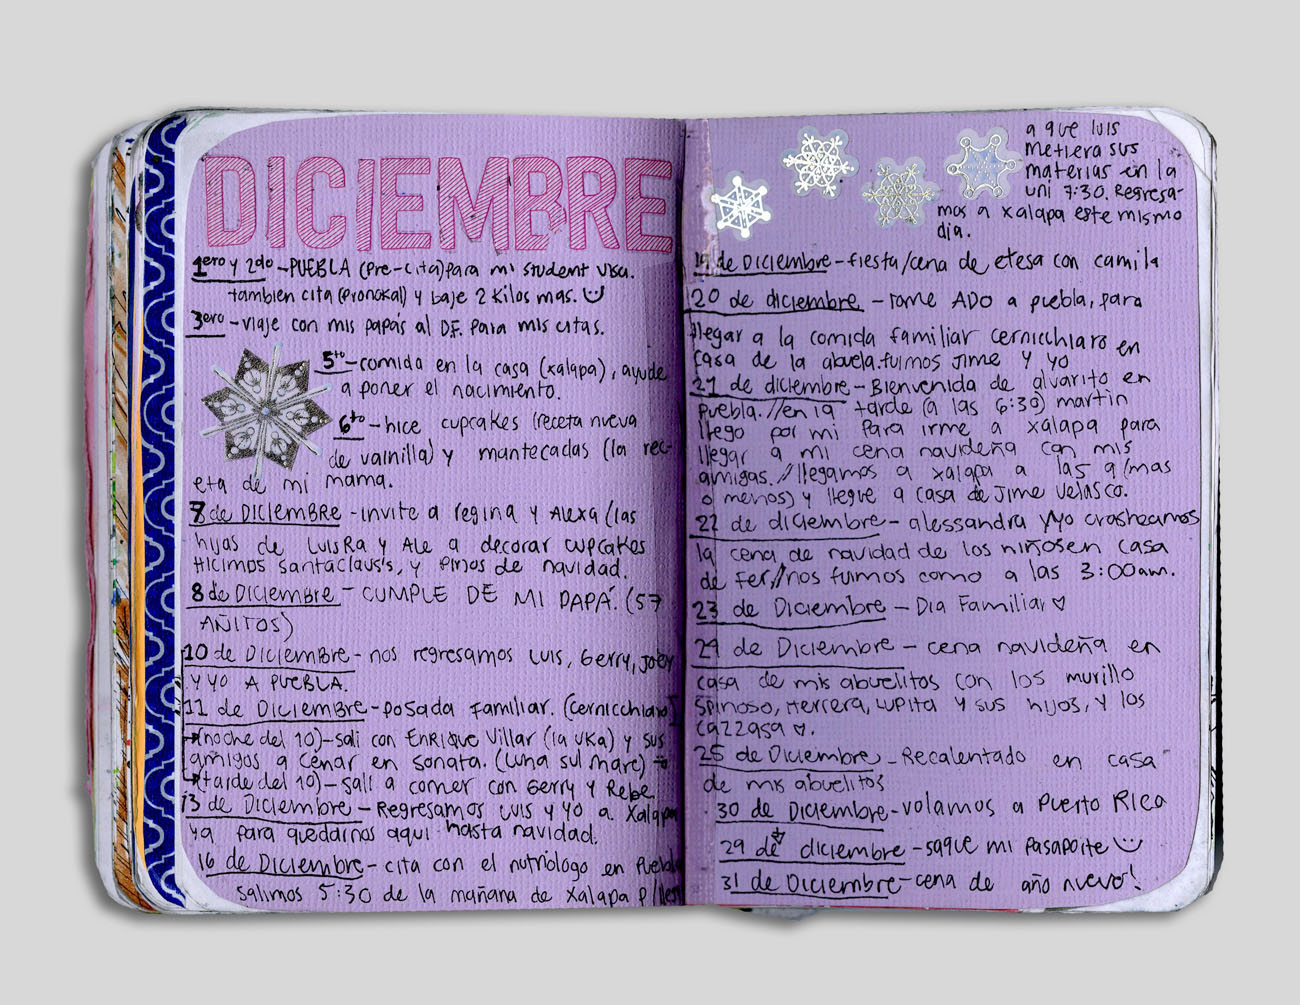 DICIEMBRE
1ero y 2do - PUEBLA (Pre-cita) para mi student visa.
tambien cita (Pronokal) y baje 2 kilos mas.
3ero - viaje con mis papás al D.F. para mis citas.
5to - comida en la casa (xalapa), ayude
a poner el nacimiento.
6to - hice cupcakes (receta nueva
de vainilla) y mantecadas (la rec-
eta de mi mama.
7 de DICIEMBRE - invite a regina y Alexa (las
hijas de LuisRa y Ale a decorar cupcakes
Hicimos santaclaus's, y Pinos de navidad.
8 de DICIEMBRE - CUMPLE DE MI PAPÁ. (57
AÑITOS)
10 de DICIEMBRE - nos regresamos Luis, Gerry, Joey
y yo A PUEBLA.
11 de DICIEMBRE - posada Familiar. (Cernicchiaro)
(noche del 10) - sali con ENRIQUE Villar (la UKa) y sus
amigos a cenar en sonata. (Luna sul mare)
(tarde del 10) - sali a comer con Gerry y Rebe
13 de Diciembre - Regresamos Luis y yo a Xalapa
ya para quedarnos aqui hasta navidad.
16 de Diciembre - cita con el nutriólogo en Puebla
salimos 5:30 de la mañana de Xalapa p/
a que Luis
metiera sus
materias en la
uni 7:30. Regresa-
mos a xalapa este mismo
dia.
19 de Diciembre - fiesta/cena de etesa con camila
20 de diciembre - tome ADO a puebla, para
llegar a la comida familiar cernicchiaro en
casa de la abuela. fuimos Jime y yo
21 de diciembre - Bienvenida de alvarito en
Puebla. // en la tarde (a las 6:30) martin
llego por mi para irme a xalapa para
llegar a mi cena navideña con mis
amigas. // llegamos a xalapa a las 9 (mas
o menos) y llegue a casa de Jime Velasco.
22 de diciembre - alessandra y yo crasheamos
la cena de navidad de los niños en casa
de Fer. // nos fuimos como a las 3:00am.
23 de Diciembre - Dia Familiar ♡
24 de Diciembre - cena navideña en
casa de mis abuelitos con los murillo
Spinoso, Herrera, Lupita y sus hijos, y los
cazzasa ♡.
25 de Diciembre - Recalentado en casa
de mis abuelitos
30 de Diciembre - volamos a Puerto Rico
29 de diciembre - saque mi pasaporte
31 de Diciembre - cena de año nuevo!